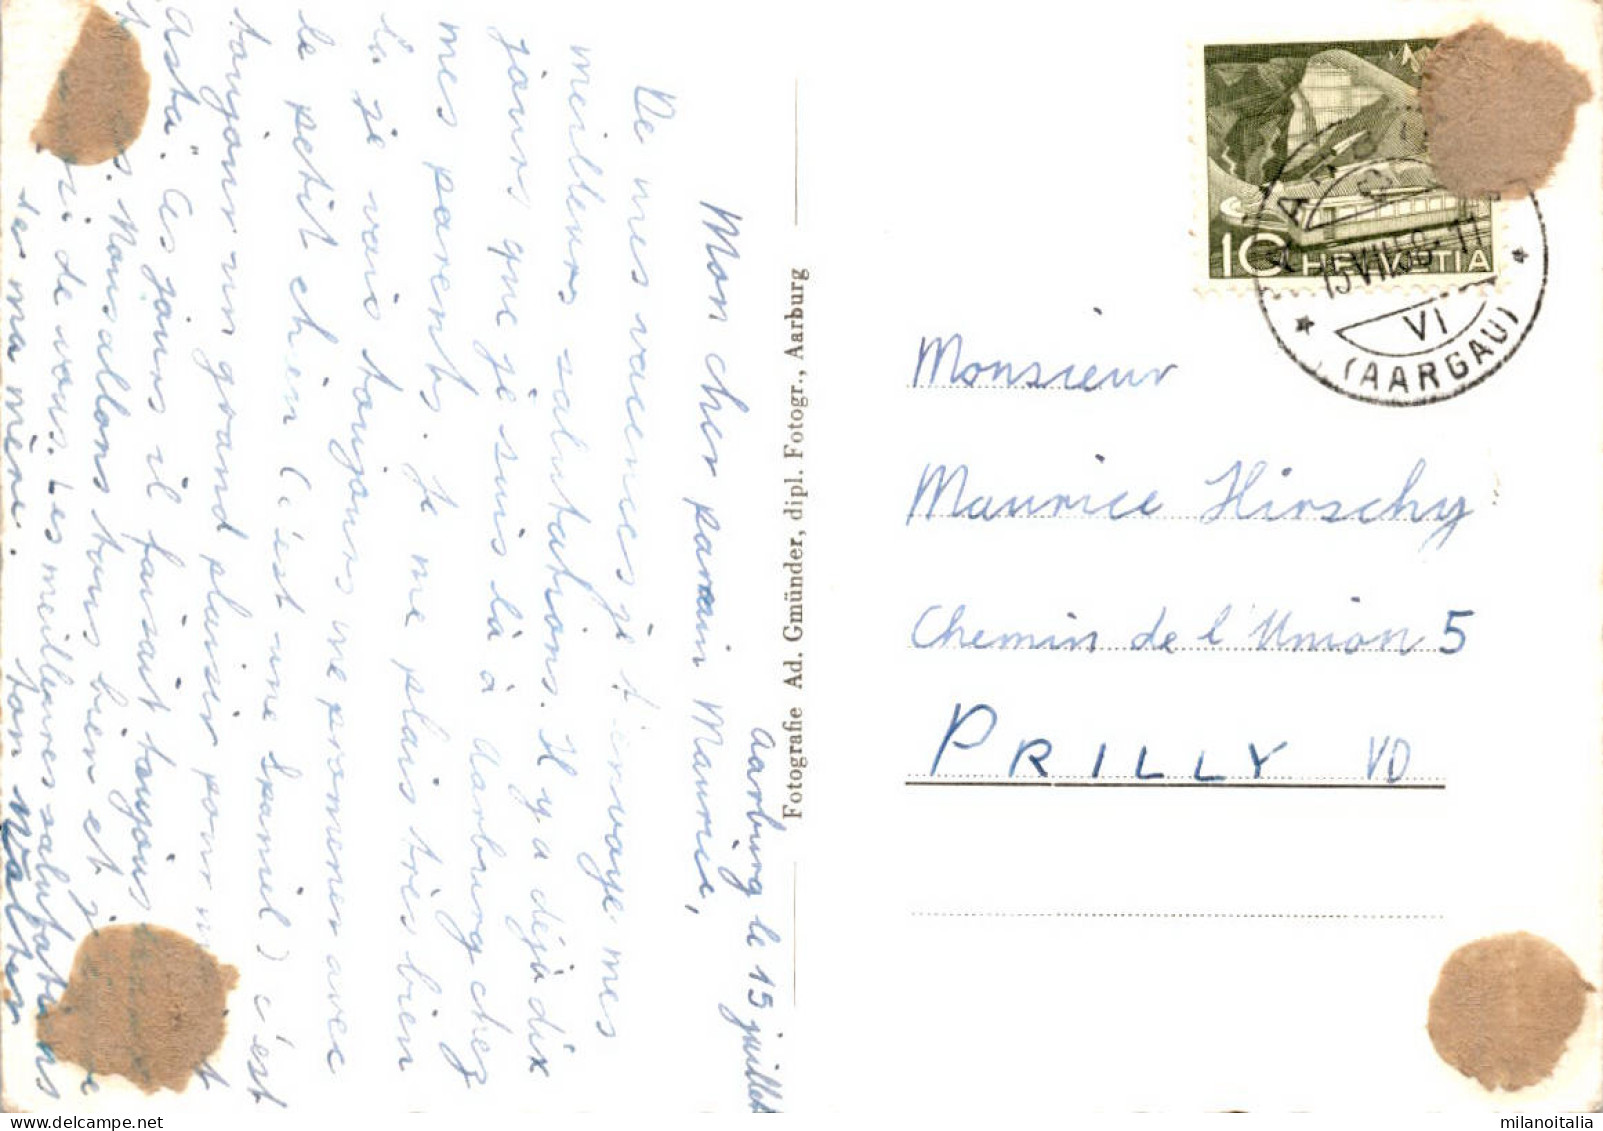 Aarburg le 15 juillet
Mon cher parrain Maurice,
De mes vacences je t'envoye mes
meilleurs salutations. Il y a déjà dix
jours que je suis là à Aarburg chez
mes parents. Je me plais très bien
là je vais toujours me promener avec
le petit chien (c'est une Spaniel) c'est
toujour un grand plaisir pour
Asta". Ces jours il faisait toujours
Nous allons tous bien et
de vous. Les meilleures salutations
de ma mère. ton Walter
Fotografie Ad. Gmünder, dipl. Fotogr., Aarburg
10 HELVETIA
VI
(AARGAU)
Monsieur
Maurice Hirschy
Chemin de l'Union 5
PRILLY VD
milanoitalia